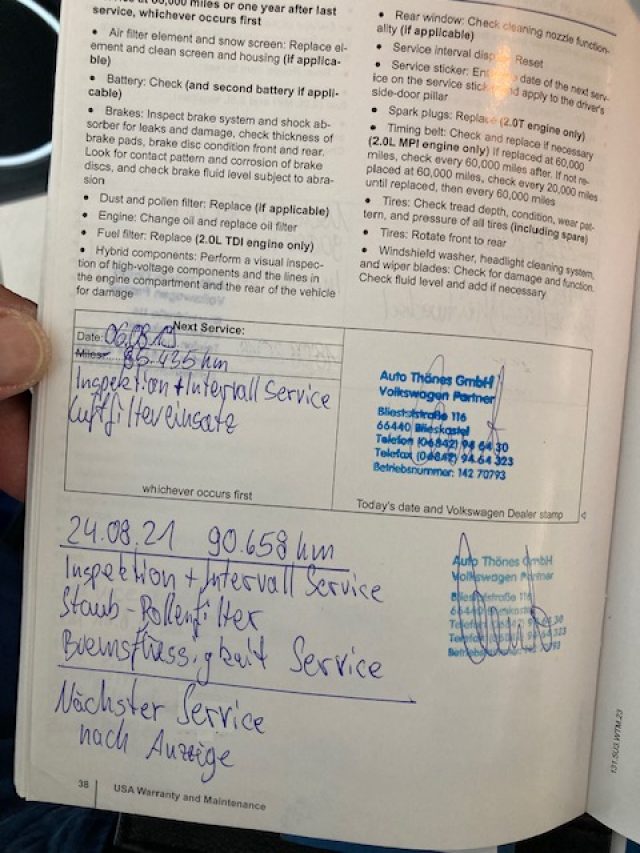 service at 60,000 miles or one year after last
service, whichever occurs first
• Air filter element and snow screen: Replace el-
ement and clean screen and housing (if applica-
ble)
• Battery: Check (and second battery if appli-
cable)
• Brakes: Inspect brake system and shock ab-
sorber for leaks and damage, check thickness of
brake pads, brake disc condition front and rear.
Look for contact pattern and corrosion of brake
discs, and check brake fluid level subject to abra-
sion
• Dust and pollen filter: Replace (if applicable)
• Engine: Change oil and replace oil filter
• Fuel filter: Replace (2.0L TDI engine only)
• Hybrid components: Perform a visual inspec-
tion of high-voltage components and the lines in
the engine compartment and the rear of the vehicle
for damage
• Rear window: Check cleaning nozzle function-
ality (if applicable)
• Service interval display: Reset
• Service sticker: date of the next serv-
ice on the service and apply to the driver's
side-door pillar
• Spark plugs: Replace (2.0T engine only)
• Timing belt: Check and replace if necessary
(2.0L MPI engine only) If replaced at 60,000
miles, check every 60,000 miles after. If not re-
placed at 60,000 miles, check every 20,000 miles
until replaced, then every 60,000 miles
• Tires: Check tread depth, condition, wear pat-
tern, and pressure of all tires (including spare)
• Tires: Rotate front to rear
• Windshield washer, headlight cleaning system,
and wiper blades: Check for damage and function.
Check fluid level and add if necessary
Next Service:
Date: 06.08.19
Miles: 85.435 km
Inspektion + Intervall Service
Luftfiltereinsatz
whichever occurs first
Auto Thönes GmbH
Volkswagen Partner
Blieststraße 116
66440 Blieskastel
Telefon (06842) 94 64 30
Telefax (06842) 94 64 323
Betriebsnummer: 142 70793
Today's date and Volkswagen Dealer stamp
24.08.21 90.658 km
Inspektion + Intervall Service
Staub-Pollenfilter
Bremsflüssigkeit Service
Nächster Service
nach Anzeige
Auto Thönes GmbH
Volkswagen Partner
38
USA Warranty and Maintenance
131.5U3.WTM.23